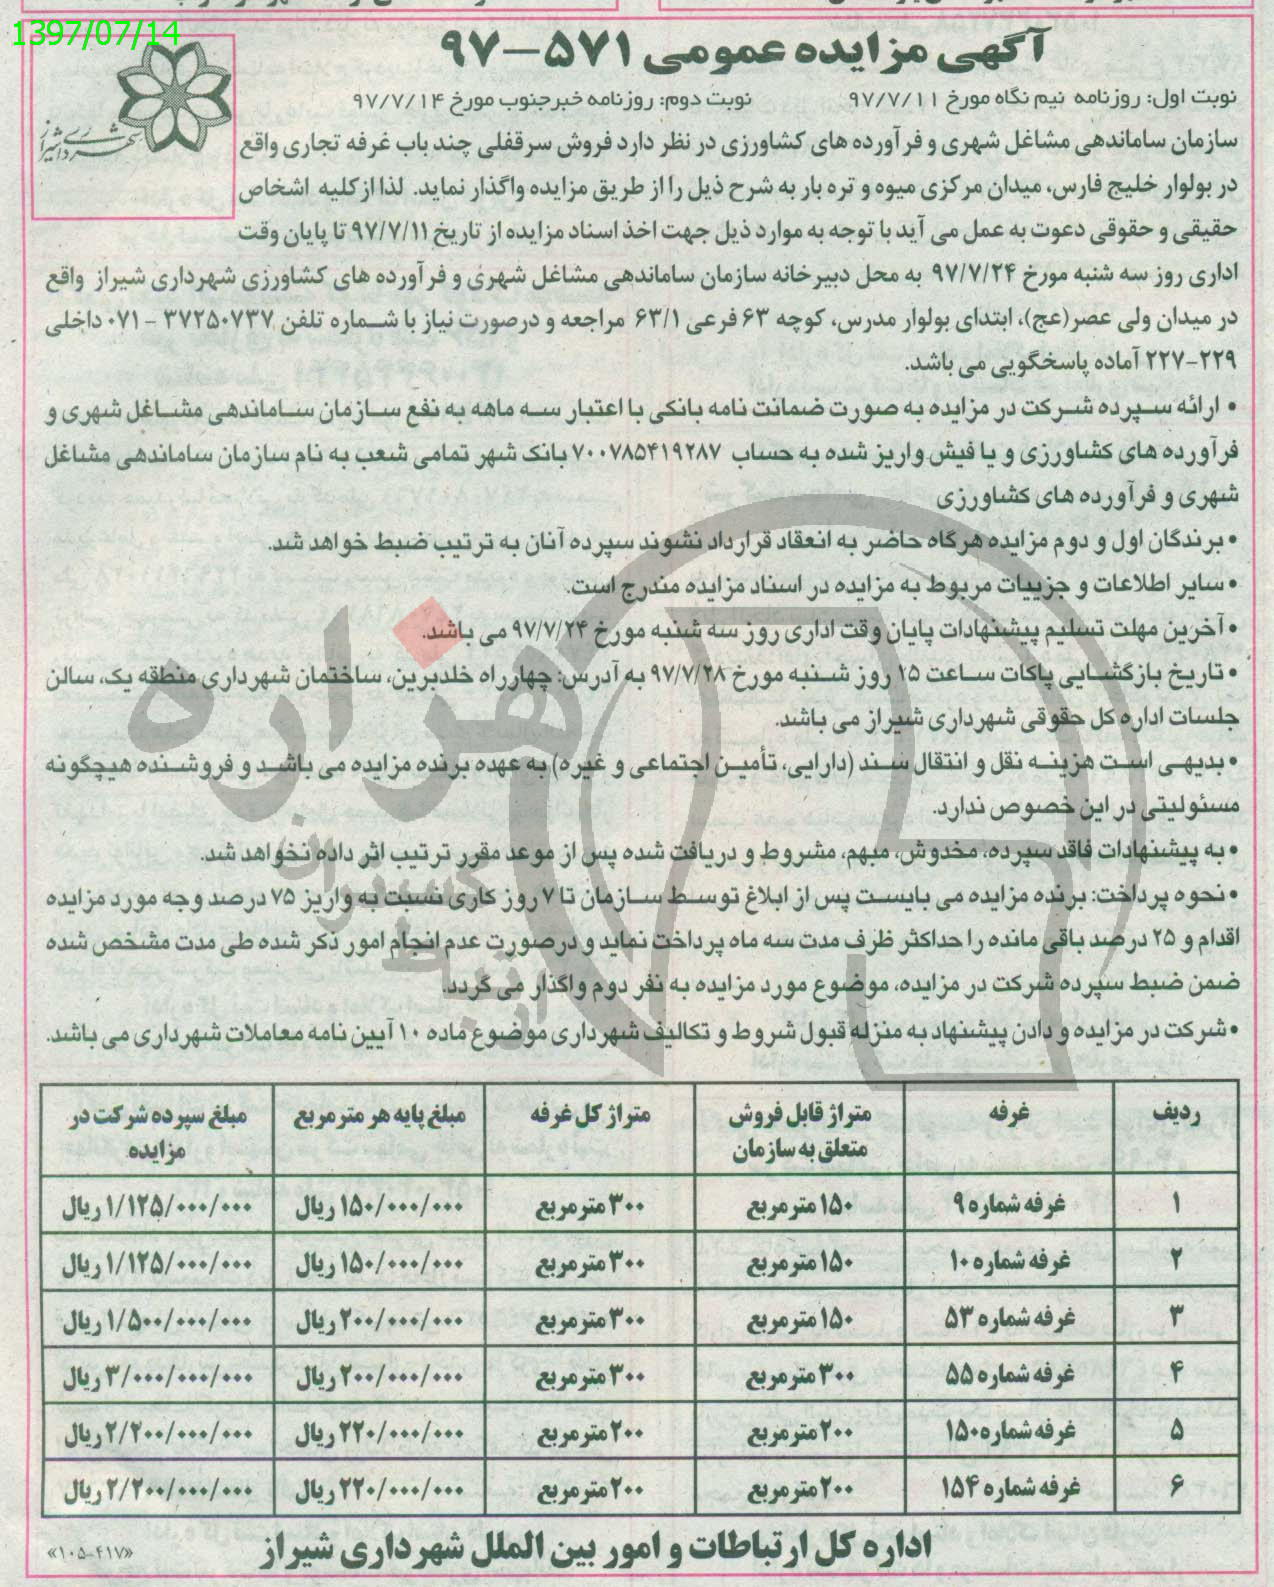 1397/07/14
شهرداری شیراز
آگهی مزایده عمومی ۵۷۱-۹۷
نوبت اول: روزنامه نیم نگاه مورخ ۹۷/۷/۱۱ نوبت دوم: روزنامه خبرجنوب مورخ ۹۷/۷/۱۴
سازمان ساماندهی مشاغل شهری و فرآورده های کشاورزی در نظر دارد فروش سرقفلی چند باب غرفه تجاری واقع
در بولوار خلیج فارس، میدان مرکزی میوه و تره بار به شرح ذیل را از طریق مزایده واگذار نماید. لذا از کلیه اشخاص
حقیقی و حقوقی دعوت به عمل می آید با توجه به موارد ذیل جهت اخذ اسناد مزایده از تاریخ ۹۷/۷/۱۱ تا پایان وقت
اداری روز سه شنبه مورخ ۹۷/۷/۲۴ به محل دبیرخانه سازمان ساماندهی مشاغل شهری و فرآورده های کشاورزی شهرداری شیراز واقع
در میدان ولی عصر(عج)، ابتدای بولوار مدرس، کوچه ۶۳ فرعی ۶۳/۱ مراجعه و درصورت نیاز با شماره تلفن ۳۷۲۵۰۷۳۷ - ۰۷۱ داخلی
۲۲۷-۲۲۹ آماده پاسخگویی می باشد.
• ارائه سپرده شرکت در مزایده به صورت ضمانت نامه بانکی با اعتبار سه ماهه به نفع سازمان ساماندهی مشاغل شهری و
فرآورده های کشاورزی و یا فیش واریز شده به حساب ۷۰۰۷۸۵۴۱۹۲۸۷ بانک شهر تمامی شعب به نام سازمان ساماندهی مشاغل
شهری و فرآورده های کشاورزی
• برندگان اول و دوم مزایده هرگاه حاضر به انعقاد قرارداد نشوند سپرده آنان به ترتیب ضبط خواهد شد.
• سایر اطلاعات و جزییات مربوط به مزایده در اسناد مزایده مندرج است.
• آخرین مهلت تسلیم پیشنهادات پایان وقت اداری روز سه شنبه مورخ ۹۷/۷/۲۴ می باشد.
• تاریخ بازگشایی پاکات ساعت ۱۵ روز شنبه مورخ ۹۷/۷/۲۸ به آدرس: چهارراه خلدبرین، ساختمان شهرداری منطقه یک، سالن
جلسات اداره کل حقوقی شهرداری شیراز می باشد.
• بدیهی است هزینه نقل و انتقال سند (دارایی، تأمین اجتماعی و غیره) به عهده برنده مزایده می باشد و فروشنده هیچگونه
مسئولیتی در این خصوص ندارد.
• به پیشنهادات فاقد سپرده، مخدوش، مبهم، مشروط و دریافت شده پس از موعد مقرر ترتیب اثر داده نخواهد شد.
• نحوه پرداخت: برنده مزایده می بایست پس از ابلاغ توسط سازمان تا ۷ روز کاری نسبت به واریز ۷۵ درصد وجه مورد مزایده
اقدام و ۲۵ درصد باقی مانده را حداکثر ظرف مدت سه ماه پرداخت نماید و درصورت عدم انجام امور ذکر شده طی مدت مشخص شده
ضمن ضبط سپرده شرکت در مزایده، موضوع مورد مزایده به نفر دوم واگذار می گردد.
• شرکت در مزایده و دادن پیشنهاد به منزله قبول شروط و تکالیف شهرداری موضوع ماده ۱۰ آیین نامه معاملات شهرداری می باشد.
هزاره
ردیف غرفه متراژ قابل فروش متعلق به سازمان متراژ کل غرفه مبلغ پایه هر مترمربع مبلغ سپرده شرکت در مزایده
۱ غرفه شماره ۹ ۱۵۰ مترمربع ۳۰۰ مترمربع ۱۵۰/۰۰۰/۰۰۰ ریال ۱/۱۲۵/۰۰۰/۰۰۰ ریال
۲ غرفه شماره ۱۰ ۱۵۰ مترمربع ۳۰۰ مترمربع ۱۵۰/۰۰۰/۰۰۰ ریال ۱/۱۲۵/۰۰۰/۰۰۰ ریال
۳ غرفه شماره ۵۳ ۱۵۰ مترمربع ۳۰۰ مترمربع ۲۰۰/۰۰۰/۰۰۰ ریال ۱/۵۰۰/۰۰۰/۰۰۰ ریال
۴ غرفه شماره ۵۵ ۳۰۰ مترمربع ۳۰۰ مترمربع ۲۰۰/۰۰۰/۰۰۰ ریال ۳/۰۰۰/۰۰۰/۰۰۰ ریال
۵ غرفه شماره ۱۵۰ ۲۰۰ مترمربع ۲۰۰ مترمربع ۲۲۰/۰۰۰/۰۰۰ ریال ۲/۲۰۰/۰۰۰/۰۰۰ ریال
۶ غرفه شماره ۱۵۴ ۲۰۰ مترمربع ۲۰۰ مترمربع ۲۲۰/۰۰۰/۰۰۰ ریال ۲/۲۰۰/۰۰۰/۰۰۰ ریال
اداره کل ارتباطات و امور بین الملل شهرداری شیراز
«۱۰۵-۴۱۷»